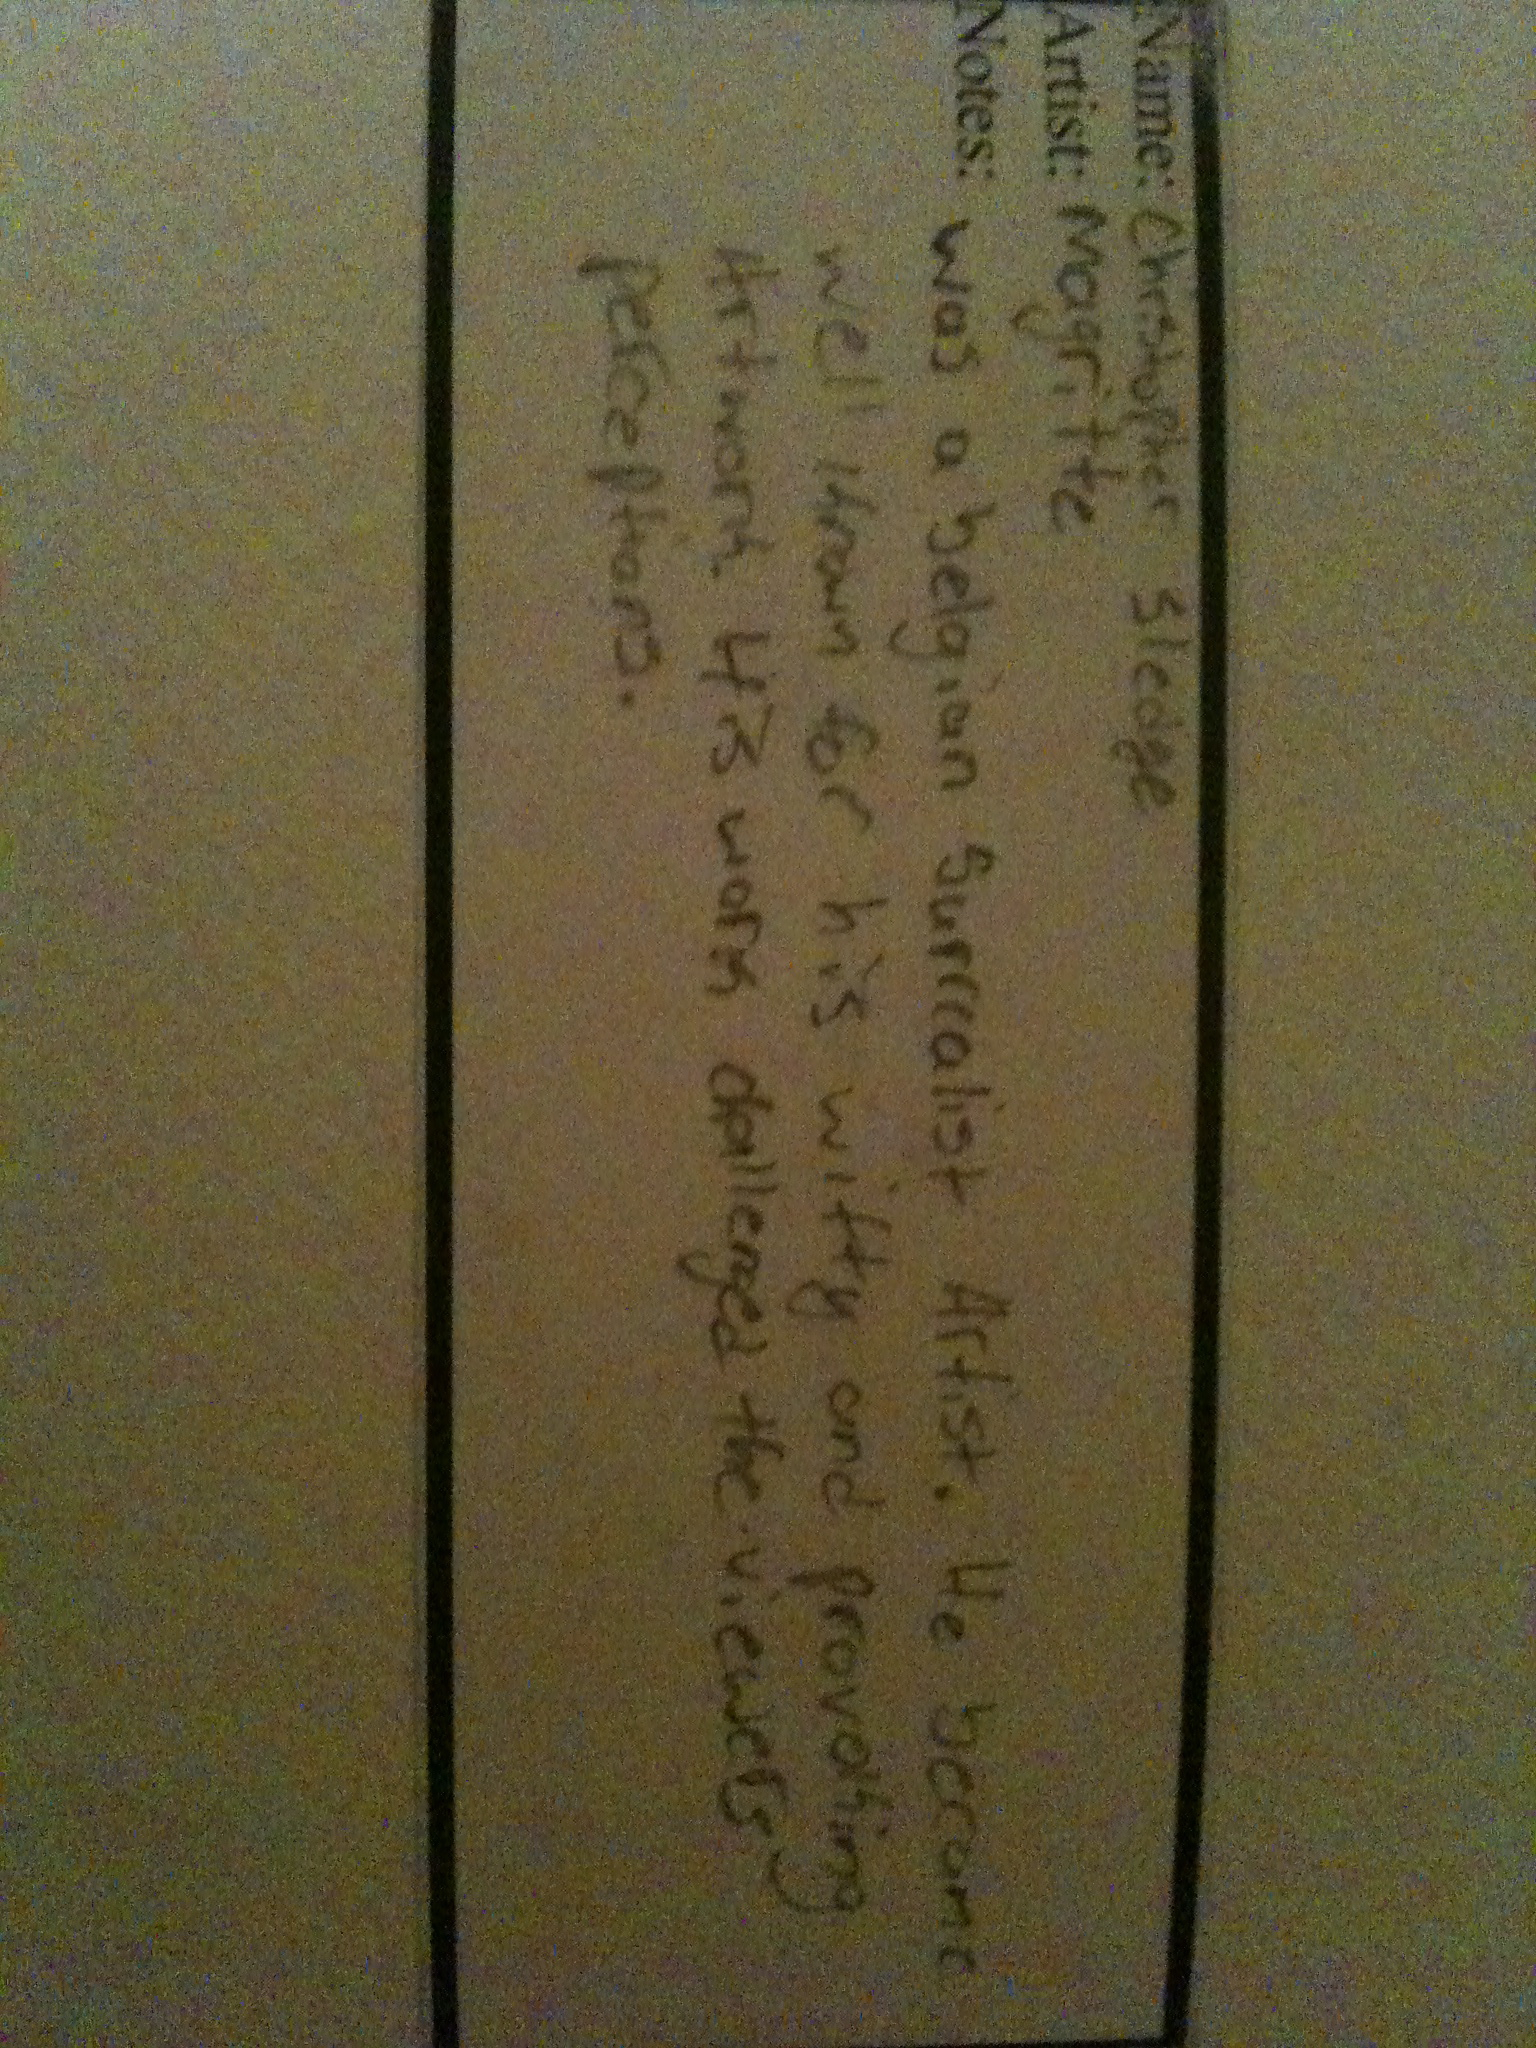 Name: Christopher Sledge
Artist: Magritte
Notes: was a belgian Surrealist Artist. He became
well known for his witty and provoking
Artwork. His work challenged the viewers
perceptions.